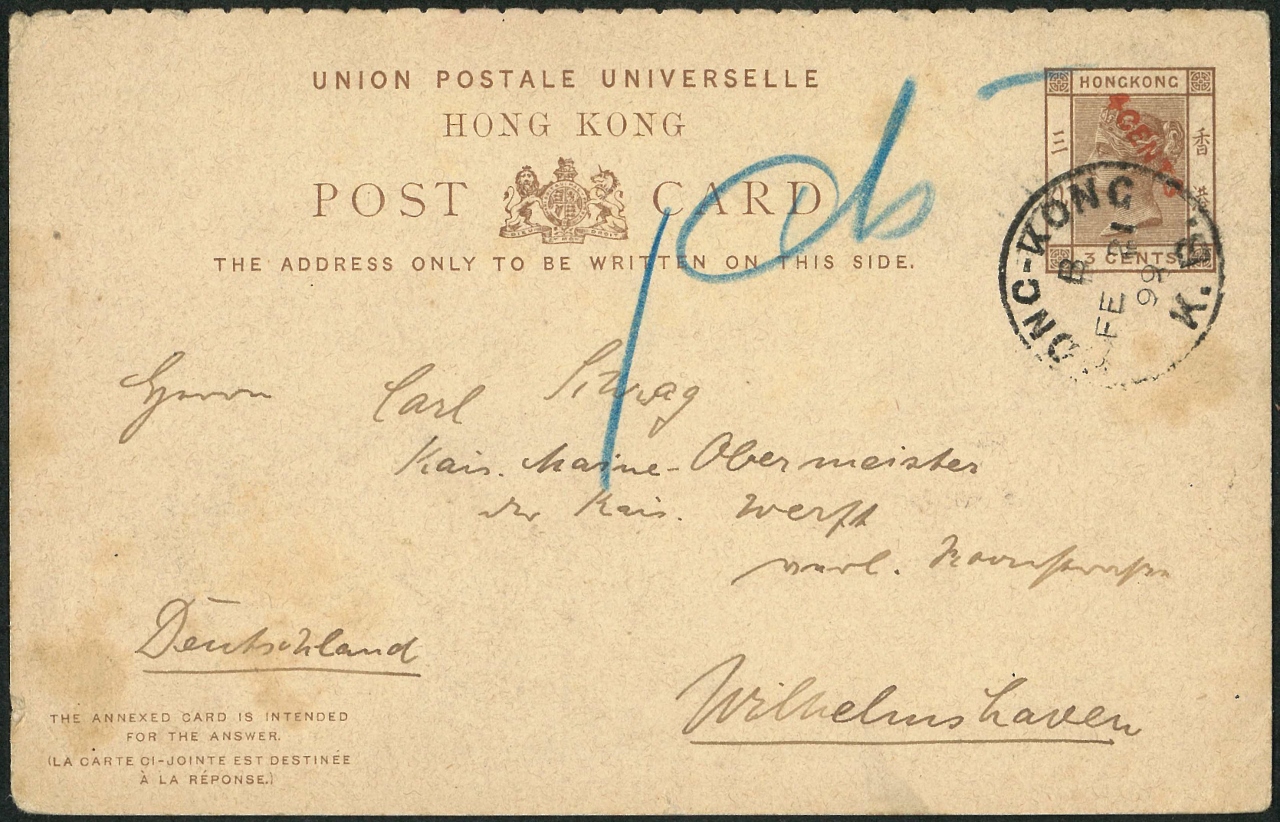 UNION POSTALE UNIVERSELLE
HONG KONG
POST CARD
THE ADDRESS ONLY TO BE WRITTEN ON THIS SIDE.
HONGKONG
三 香
港
CENTS
3 CENTS
ONG-KONG
K.B.
B
FE 1
99
Herrn Carl
Kais. Marine-Obermeister
der Kais. Werft
verl. Roonstrasse
Deutschland
Wilhelmshaven
THE ANNEXED CARD IS INTENDED
FOR THE ANSWER.
(LA CARTE CI-JOINTE EST DESTINÉE
À LA RÉPONSE.)